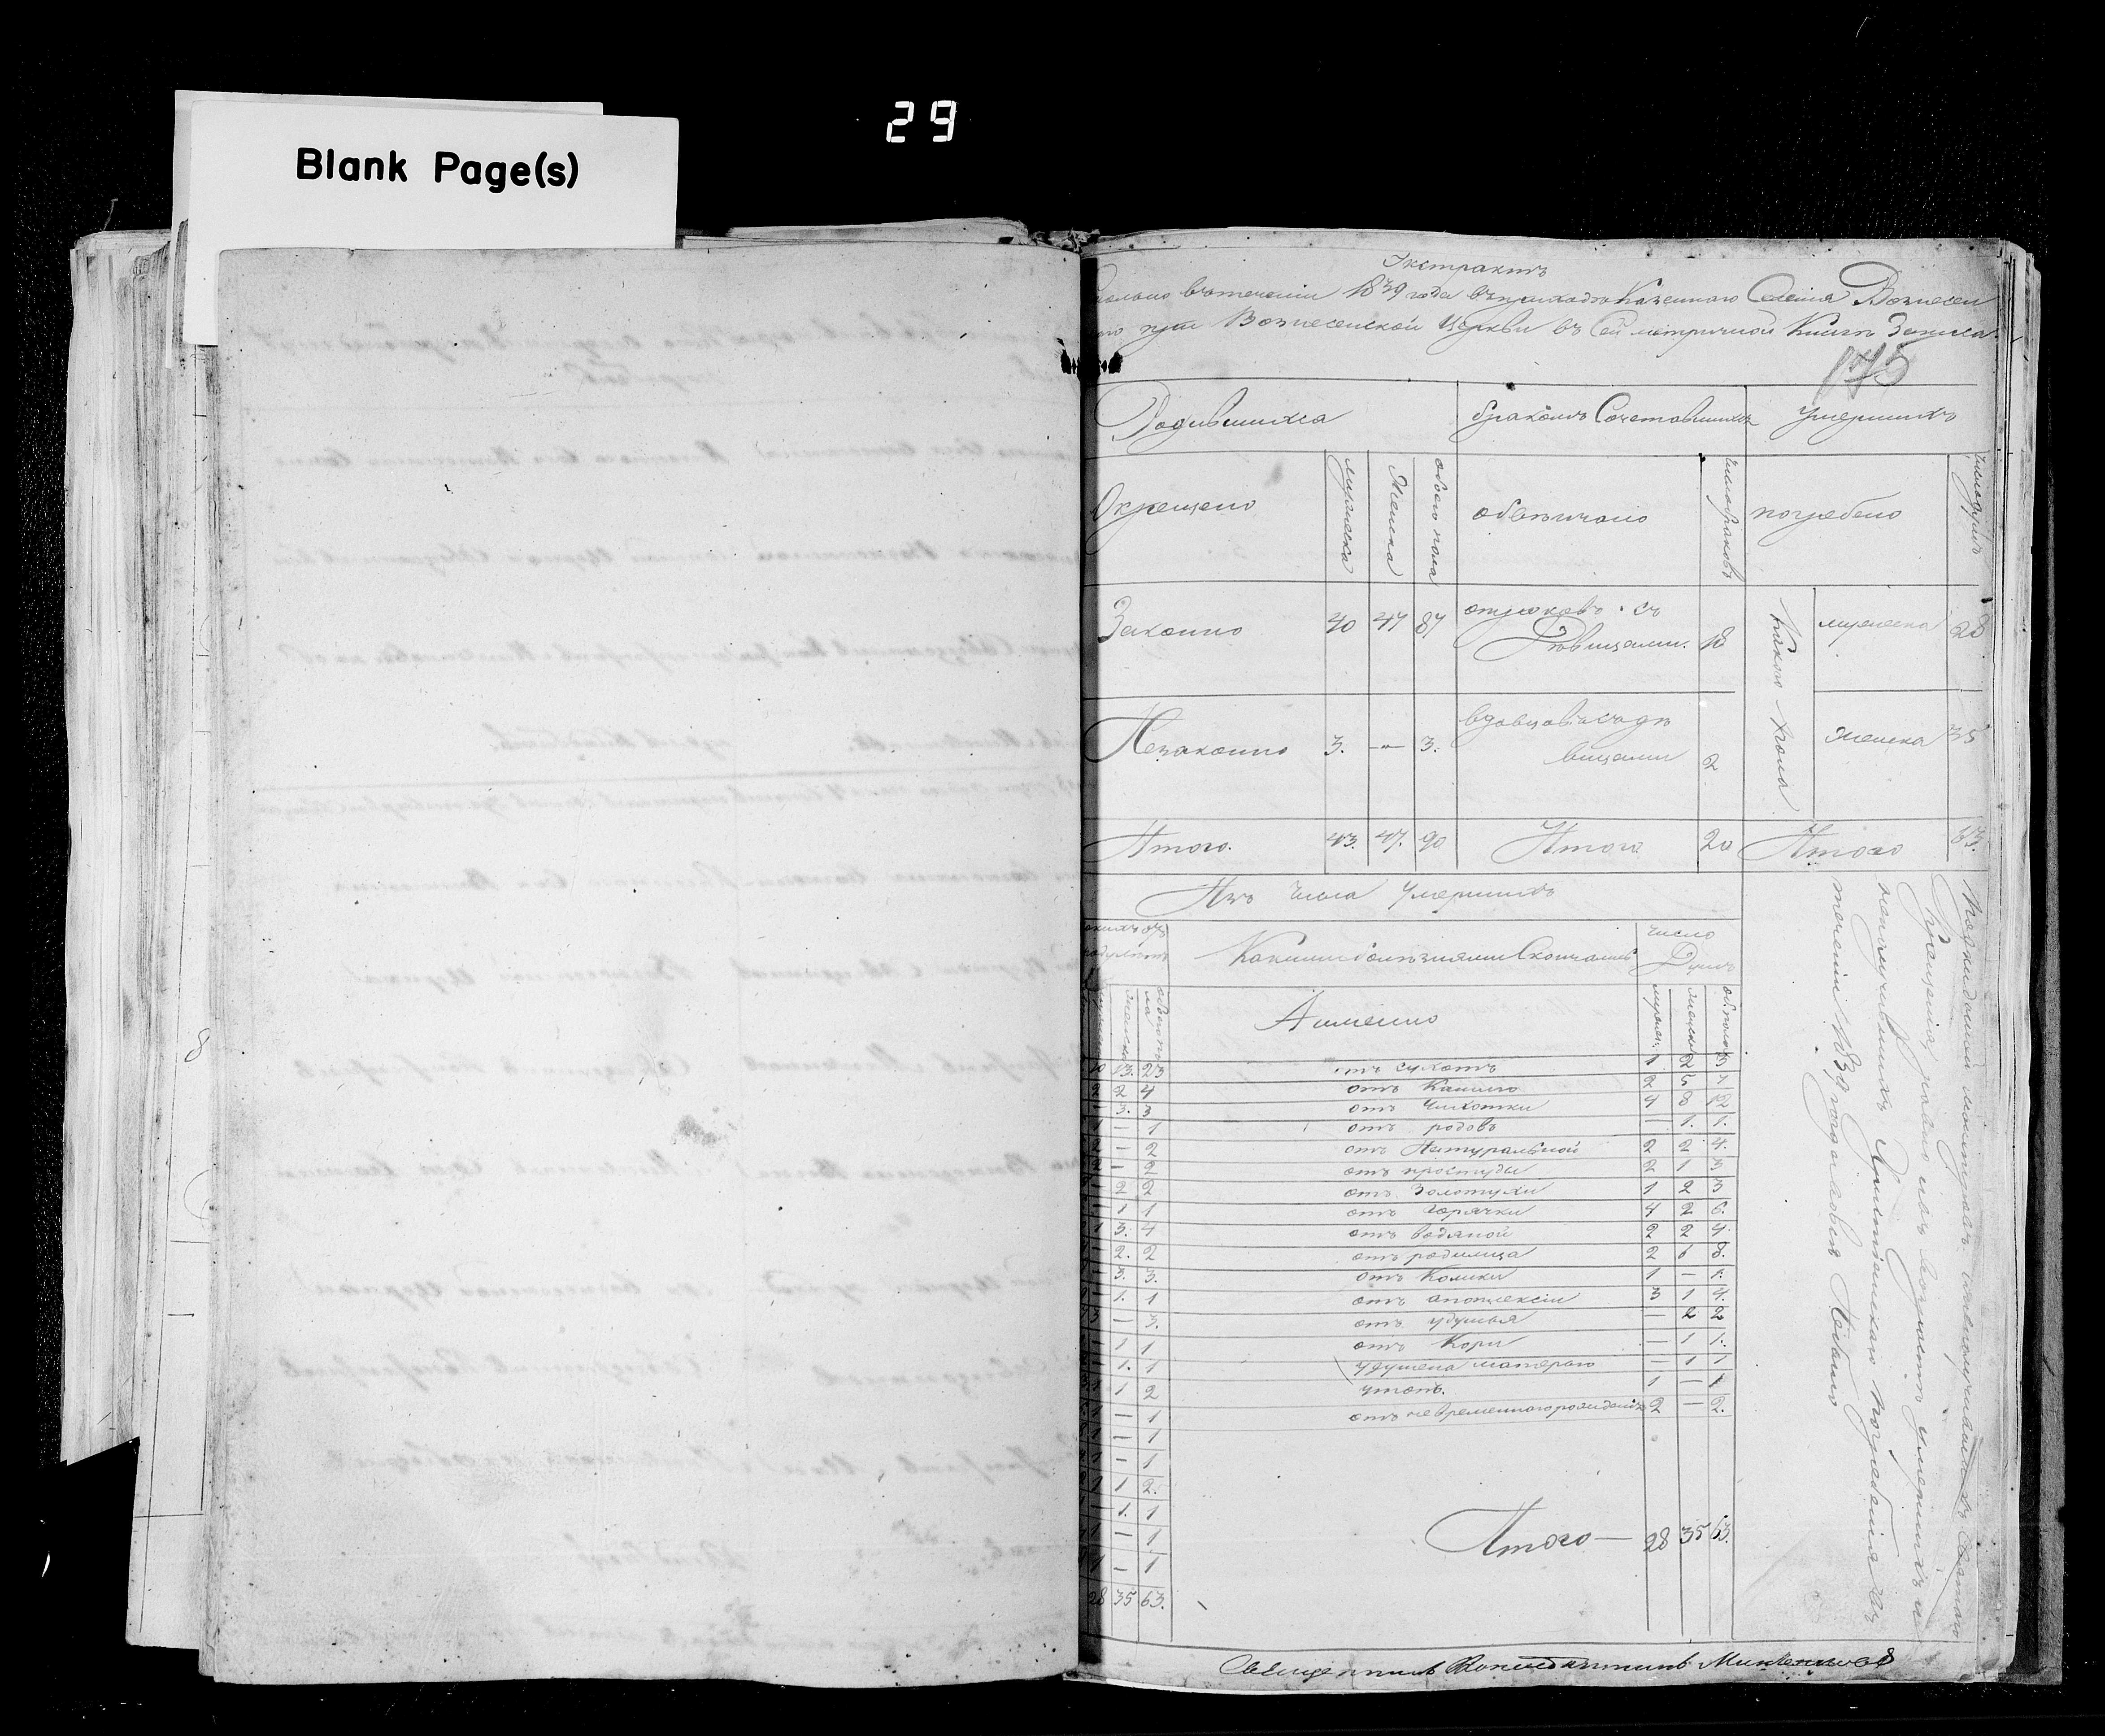 29
Blank Page(s)
8
Экстрактъ
сколько втечении 1839 года въ приходѣ Казеннаго Селения Вознесен
при Вознесенской Церкви въ сей метричной Книгѣ Записа
175
Родившихся
бракомъ Сочетавшихся
умершихъ
Окрещено
мужеска
Женска
обоего пола
обвѣнчано
число браковъ
погребено
число душъ
Законно 40 47 87
отроковъ съ
Дѣвицами. 18
Какого пола
мужеска 28
Незаконно 3. — 3.
вдовцовъ съ дѣ
вицами 2
женска 35
Итого. 43. 47. 90
Итого 20
Итого 63.
Изъ числа умершихъ
Какими болѣзнями Скончались
число
Душъ
А именно
мужеск.
женска
об. пола
отъ сухотъ 1 2 3
отъ Кашлю 2 5 7
отъ чихотки 4 8 12
отъ родовъ — 1. 1.
отъ Натуральной 2 2 4.
отъ простуды 2 1 3
отъ Золотухи 1 2 3
отъ горячки 4 2 6.
отъ водяной 2 2 4.
отъ родимца 2 6 8.
отъ Колики 1 — 1.
отъ апоплексіи 3 1 4.
отъ удушья — 2 2
отъ Кори — 1 1.
удушена матерью — 1 1
утоп. 1 — 1
отъ не временнаго рожденія 2 — 2.
Итого — 28 35 63.
10 13. 23
2 2 4
— 3. 3
1 — 1
2 — 2
2 — 2
— 2 2
— 1 1
1 3. 4
— 2. 2
— 3. 3.
— 1. 1
3 — 3.
— 1 1
— 1. 1
1 1 2
1 — 1
1 — 1
1 — 1
1 1 2.
— 1. 1
1 — 1
1 — 1
28 35 63.
Крещенія, равно изъ возраст умершихъ и
неполучившихъ Христіанскаго погребенія въ
теченіи 1839 года небыло
Священникъ Константинъ